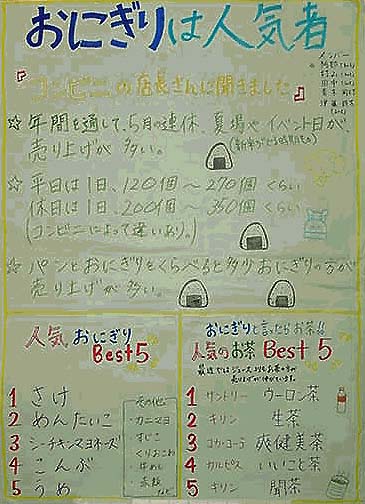 おにぎりは人気者
メンバー
『コンビニの店長さんに聞きました』
☆年間を通して、5月の連休、夏場や、イベント日が、
売り上げが多い。
☆平日は1日、120個〜270個くらい
休日は1日、200個〜350個くらい
(コンビニによって違いあり。)
☆パンとおにぎりをくらべると多少おにぎりの方が
売り上げが多い。
人気おにぎり
Best5
1 さけ
2 めんたいこ
3 シーチキンマヨネーズ
4 こんぶ
5 うめ
その他
・カニマヨ
・すじこ
・赤飯
など
おにぎりと言ったらお茶!!
人気のお茶 Best 5
1 サントリー ウーロン茶
2 キリン 生茶
3 コカ・コーラ 爽健美茶
4 カルピス いいこと茶
5 キリン 聞茶